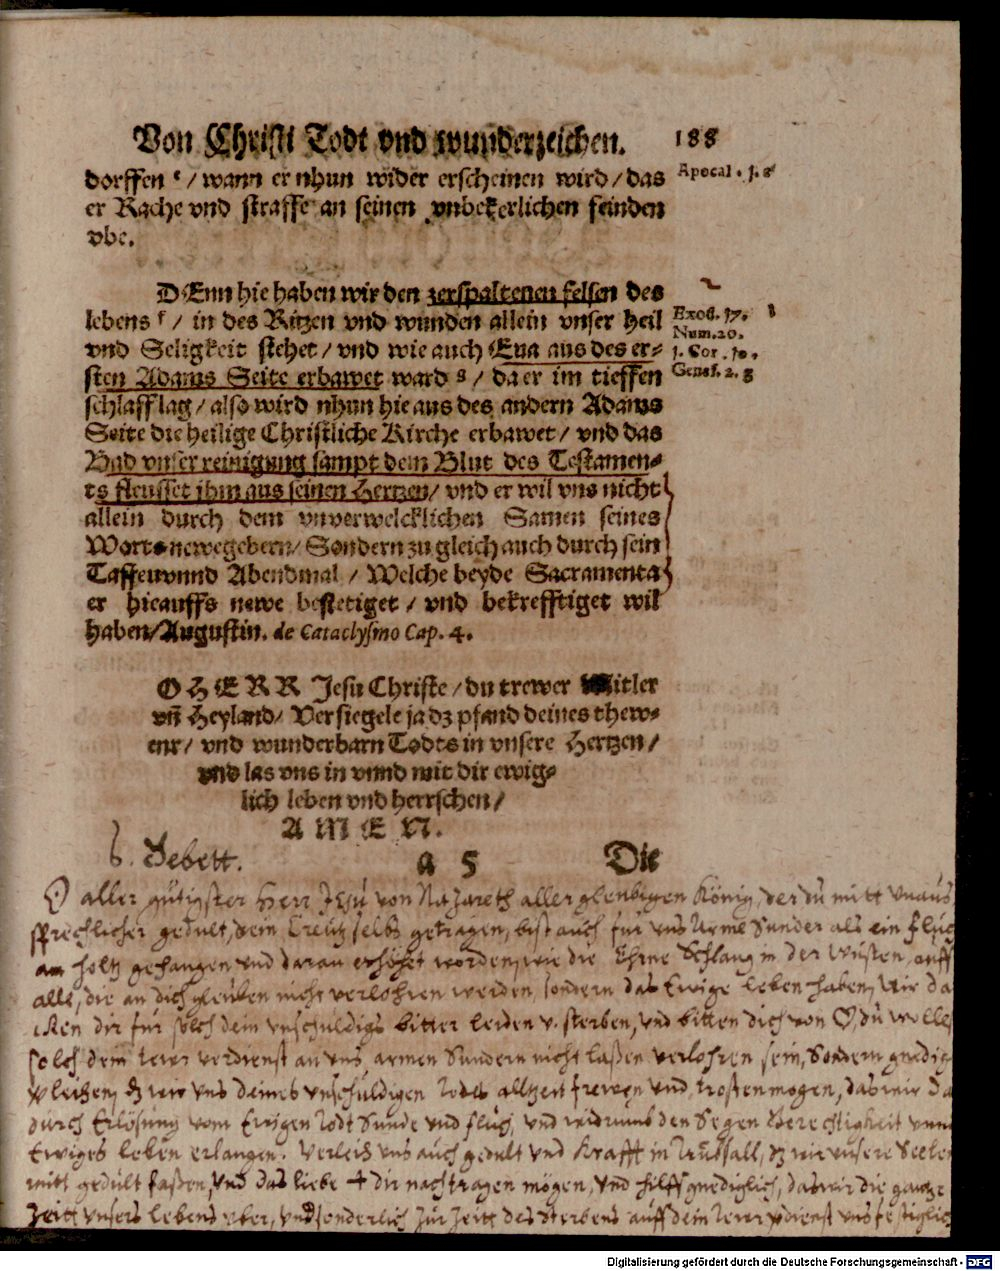 Von Christi Todt vnd wunderzeichen. 188
dorffen e / wann er nhun wider erscheinen wird / das
Apocal. 1. e
er Rache vnd straffe an seinen vnbekerlichen feinden
vbe.
DEnn hie haben wir den zerspaltenen felsen des
lebens f / in des Ritzen vnd wunden allein vnser heil
Exod. 17. f
Num. 20.
vnd Seligkeit stehet / vnd wie auch Eua aus des er-
1. Cor. 10.
sten Adams Seite erbawet ward g / da er im tieffen
Genes. 2. g
schlaff lag / also wird nhun hie aus des andern Adams
Seite die heilige Christliche Kirche erbawet / vnd das
Bad vnser reinigung sampt dem Blut des Testamen-
ts fleusset ihm aus seinen Hertzen / vnd er wil vns nicht
allein durch dem vnverwelcklichen Samen seines
Worts newegebern / Sondern zu gleich auch durch sein
Tauffen vnnd Abendmal / Welche beyde Sacramenta
er hieauffs newe bestetiget / vnd bekrefftiget wil
haben / Augustin. de Cataclysmo Cap. 4.
O HERR Jesu Christe / du trewer Mitler
vñ Heyland / Versiegele ja dz pfand deines thew-
enr / vnd wunderbarn Todts in vnsere Hertzen /
vnd las vns in vnnd mit dir ewig-
lich leben vnd herrschen /
AMEN.
6. Gebett.
a 5 Die
O aller gütigster Herr Jesu von Nazareth aller gleubigen König, der du mitt vnaus
sprechlicher gedult, dein Creutz selbs getragen, bist auch für vns Arme Sunder als ein fluch
am holtz gehangen vnd daran erhöhet worden, wie die Ehrne Schlang in der Wüsten, auff
alle, die an dich gleuben nicht verlohren werden, sondern das Ewige leben haben, Wir da
cken dir für solch dein vnschuldigs bitter leiden v. sterben, vnd bitten dich von du wolles
solch dein tewr verdienst an vns armen Sundern nicht laßen verlohren sein, Sondern gnedig
verleihen, dz wir vns deines vnschuldigen Todes allzeit frewen vnd trosten mogen, das wir da
durch Erlösung vom Ewigen Todt Sunde vnd fluch, vnd widrumb den Segen Gerechtigkeit vnnd
Ewiges leben erlangen. Verleih vns auch gedult vnd Krafft in Trübsall, dz wir vnsere Seelen
mitt gedult faßen, vnd das liebe + dir nachtragen mögen, vnd hilff gnediglich, das wir die gantze
Zeitt vnsers lebens vber, vnd sonderlich zur Zeitt des sterbens auff dein tewr verdienst vns festiglich
Digitalisierung gefördert durch die Deutsche Forschungsgemeinschaft - DFG